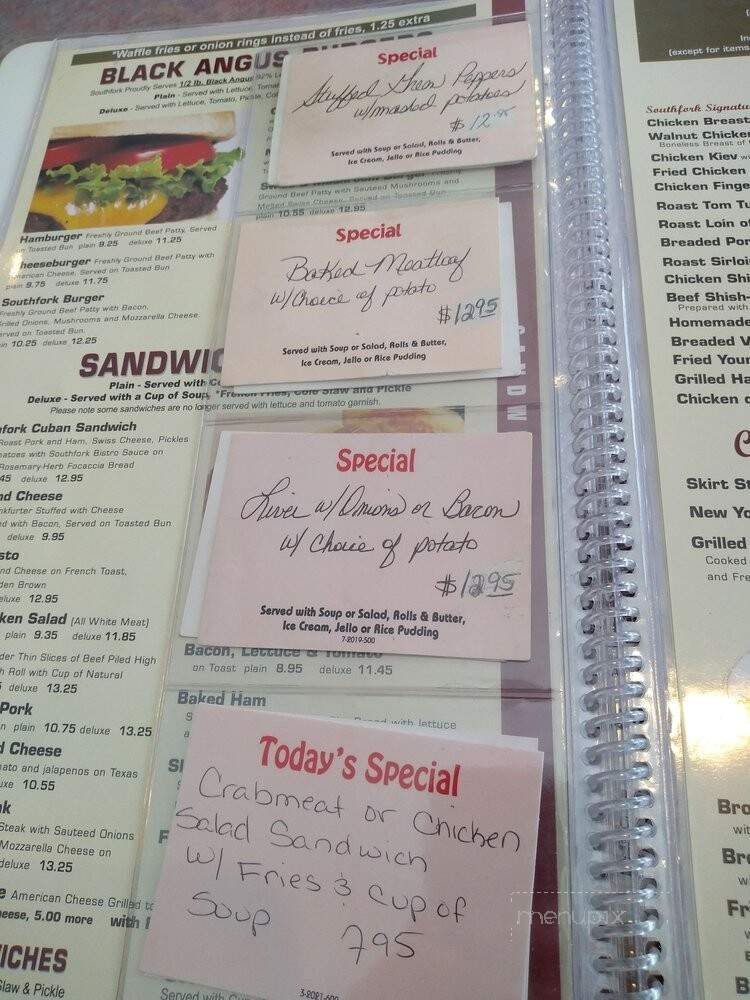 *Waffle fries or onion rings instead of fries, 1.25 extra
BLACK ANGUS BURGERS
Southfork Proudly Serves 1/2 lb. Black Angus 92%
Plain - Served with Lettuce,
Deluxe - Served with Lettuce, Tomato, Pickle,
Hamburger Freshly Ground Beef Patty, Served
on Toasted Bun plain 9.25 deluxe 11.25
heeseburger Freshly Ground Beef Patty with
merican Cheese, Served on Toasted Bun
plain 9.75 deluxe 11.75
Southfork Burger
Freshly Ground Beef Patty with Bacon,
rilled Onions, Mushrooms and Mozzarella Cheese.
erved on Toasted Bun.
in 10.25 deluxe 12.25
Special
Stuffed Green Peppers
w/mashed potatoes
$12.95
Served with Soup or Salad, Rolls & Butter,
Ice Cream, Jello or Rice Pudding
Ground Beef Patty with Sauteed Mushrooms and
Melted Swiss Cheese, Served on Toasted Bun
plain 10.55 deluxe 12.95
Special
Baked Meatloaf
w/Choice of potato
$12.95
Served with Soup or Salad, Rolls & Butter,
Ice Cream, Jello or Rice Pudding
SANDWIC
Plain - Served with
Deluxe - Served with a Cup of Soup, *French Fries, Cole Slaw and Pickle
Please note some sandwiches are no longer served with lettuce and tomato garnish.
fork Cuban Sandwich
Roast Pork and Ham, Swiss Cheese, Pickles
matoes with Southfork Bistro Sauce on
Rosemary-Herb Focaccia Bread
45 deluxe 12.95
nd Cheese
nkfurter Stuffed with Cheese
ed with Bacon, Served on Toasted Bun
deluxe 9.95
sto
nd Cheese on French Toast,
den Brown
deluxe 12.95
ken Salad (All White Meat)
plain 9.35 deluxe 11.85
der Thin Slices of Beef Piled High
h Roll with Cup of Natural
deluxe 13.25
Pork
n plain 10.75 deluxe 13.25
d Cheese
ato and jalapenos on Texas
uxe 10.55
ak
Steak with Sauteed Onions
Mozzarella Cheese on
deluxe 13.25
e American Cheese Grilled to
heese, 5.00 more with
ICHES
Slaw & Pickle
Special
Liver w/Onions or Bacon
w/ Choice of potato
$12.95
Served with Soup or Salad, Rolls & Butter,
Ice Cream, Jello or Rice Pudding
7-2019-500
Bacon, Lettuce & Tomato
on Toast plain 8.95 deluxe 11.45
Baked Ham
Bread with lettuce
Today's Special
Crabmeat or Chicken
Salad Sandwich
w/ Fries & Cup of
Soup 795
3-2021-600
Served with
(except for items
Southfork Signatu
Chicken Breast
Walnut Chicke
Boneless Breast of
Chicken Kiev
Fried Chicken
Chicken Finge
Roast Tom Tu
Roast Loin o
Breaded Por
Roast Sirloi
Chicken Shi
Beef Shish-
Prepared with
Homemade
Breaded V
Fried Your
Grilled Ha
Chicken
C
Skirt St
New Yo
Grilled
Cooked
and Fre
Bro
wit
Bro
Fri
menupix